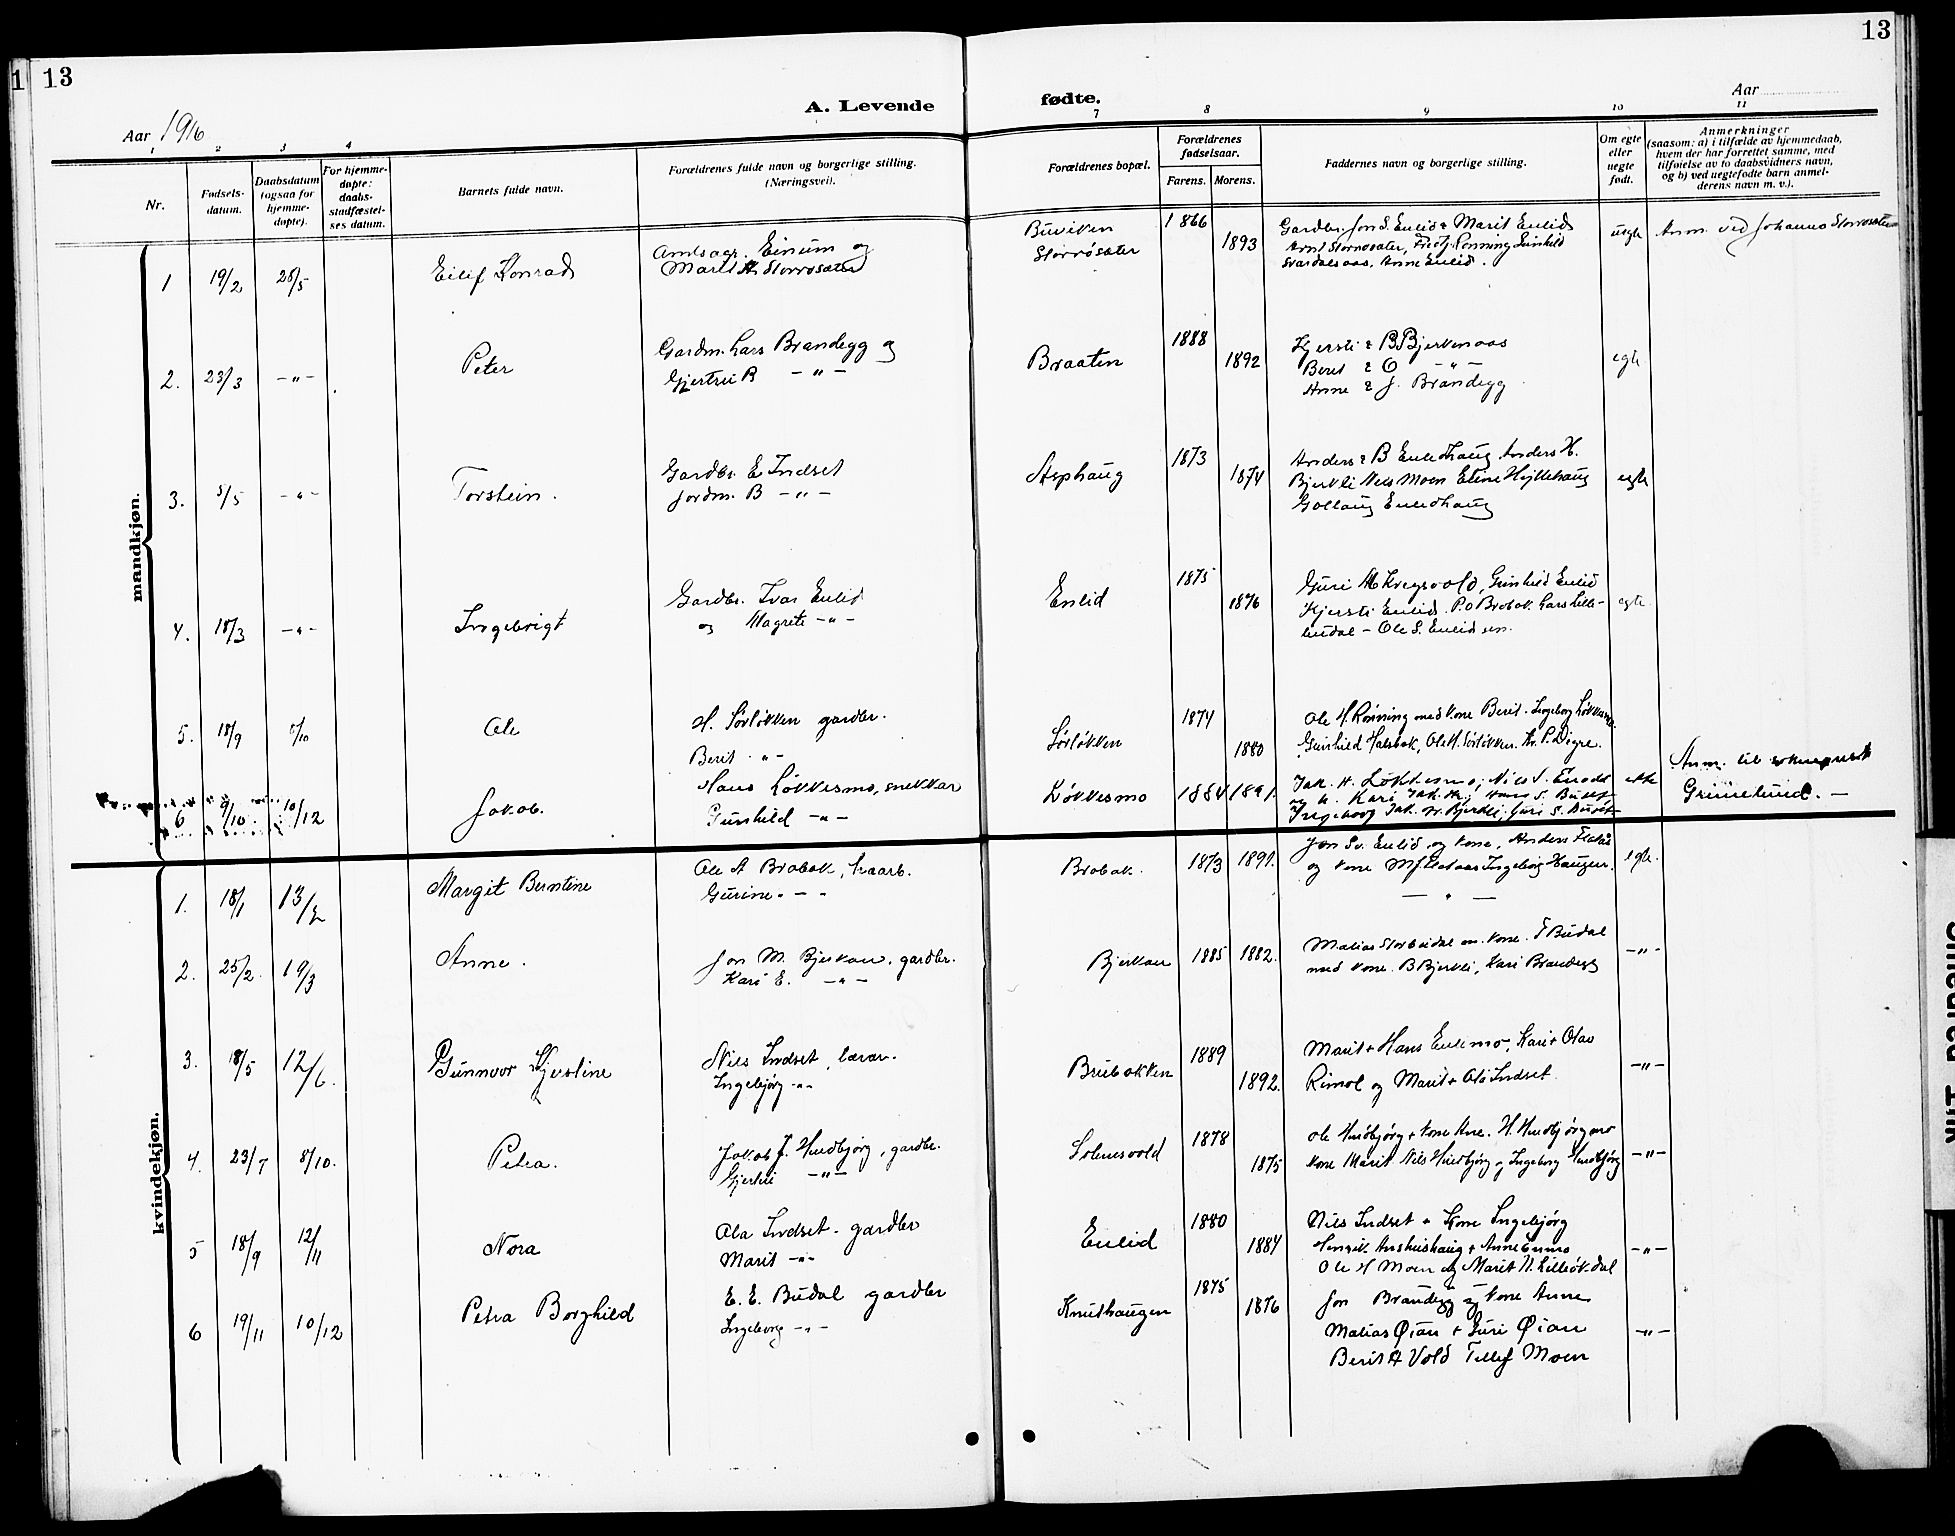 13
13
A. Levende fødte.
Aar 1916
Aar
1 2 3 4 7 8 9 10 11
Nr.
Fødsels-
datum.
Daabsdatum
(ogsaa for
hjemme-
døpte).
For hjemme-
døpte:
daabs-
stadfæstel-
ses datum.
Barnets fulde navn.
Forældrenes fulde navn og borgerlige stilling.
(Næringsvei).
Forældrenes bopæl.
Forældrenes
fødselsaar.
Farens. Morens.
Faddernes navn og borgerlige stilling.
Om egte
eller
uegte
født.
Anmerkninger
(saasom: a) i tilfælde av hjemmedaab,
hvem der har forrettet samme, med
tilføielse av to daabsvidners navn,
og b) ved uegtefødte barn anmel-
derens navn m. v.).
mandkjøn.
1 19/2 28/5 Eilif Konrad
Amdsagr. Einum og
Marit A. Storrøsæter
Buviken
Storrøsæter
1866 1893
Gardbr. Jon S. Enlid & Marit Enlid
Arnt Storrøsæter, Fredtj. Rønning Gunhild
Svardalsaas, Anne Enlid.
uegte
Anm. ved Johanna Storrøsæter
2. 23/3 -"- Peter
Gardm. Lars Brandegg og
Gjertrei B -"-
Braaten
1888 1892
Kjersti & B Bjerkenaas
Beret & O -"-
Anne & J. Brandegg
egte
3. 5/5 -"- Torstein.
Gardbr. E Indset
Jordm. B -"-
Asphaug
1873 1874
Anders & B Enlidhaug Anders H.
Bjerkli Nels Moen Eline Hyllehaug
Gollaug Enlidhaug
egte
4. 18/3 -"- Ingebrigt
Gardbr. Ivar Enlid
og Magrete -"-
Enlid
1875 1876
Guri M Kregsvold, Gunhild Enlid
Kjersti Enlid. P. O Brobak. Lars Lille-
budal - Ole S. Enlid sen.
egte.
5. 18/9 8/10 Ole
H. Sørløkken gardbr.
Berit -"-
Sørløkken
1874 1880
Ole H. Rønning med kone Berit. Ingeborg Løkken
Gunhild Halsbak, Ole H. Sørløkken. Kr. P. Digre.
6 9/10 10/12 Jakob.
Hans Løkkesmo, snekkar
Gunhild -"-
Løkkesmo
1884 1891.
Jak. H. Løkkesmo; Nils S. Enodd
og k. Kari Jak. Hr; Hans S. Buset
Ingeborg Jak. Hr. Bjerkli, Guri S. Busæt
ekte
Anm. til sokneprest
Grimelund. —
kvindekjøn.
1. 18/1 13/2 Margit Berntine
Ole A Brobak, haarb.
Gurine. - " -
Brobak.
1873 1891.
Jon Sv. Enlid og kone, Anders Flataas
og kone M Flataas Ingeborg Haugen.
— " —
egte.
2. 25/2. 19/3 Anne.
Jon M. Bjerkan, gardbr.
Kari E. -"-
Bjerkan
1885 1882.
Matias Storbudal m. kone. T Budal
med kone. B Bjerkli, Kari Brandegg
-"-
3. 18/5 12/6. Gunnvor Kjerstine
Nils Indset, lærar.
Ingebjørg -"-
Brubakken
1889 1892.
Marit + Hans Enlimo, Kari + Olav
Rimol og Marit + Ola Indset.
-"-
4. 23/7 8/10. Petra.
Jakob J. Hindbjørg, gardbr.
Gjertri -"-
Solemsvold
1878 1875
Ole Hindbjørg + kone Ane. H. Hindbjørgmo
kone Marit. Nils Hindbjørg og Ingeborg Hindbjørg
-"-
5 18/9 12/11 Nora
Ola Indset. gardbr
Marit -"-
Enlid
1880 1884
Nils Indset + kone Ingebjørg
Henrik Aashushaug + Anne Enmo
Ole H Moen og Marit N. Lillebudal
-"-
6 19/11 10/12 Petra Borghild
E. E. Budal gardbr
Ingeborg -"-
Knuthaugen
1875 1876
Jon Brandegg og kone Anne
Matias Øian + Guri Øian
Berit A Vold Tellef Moen
-"-